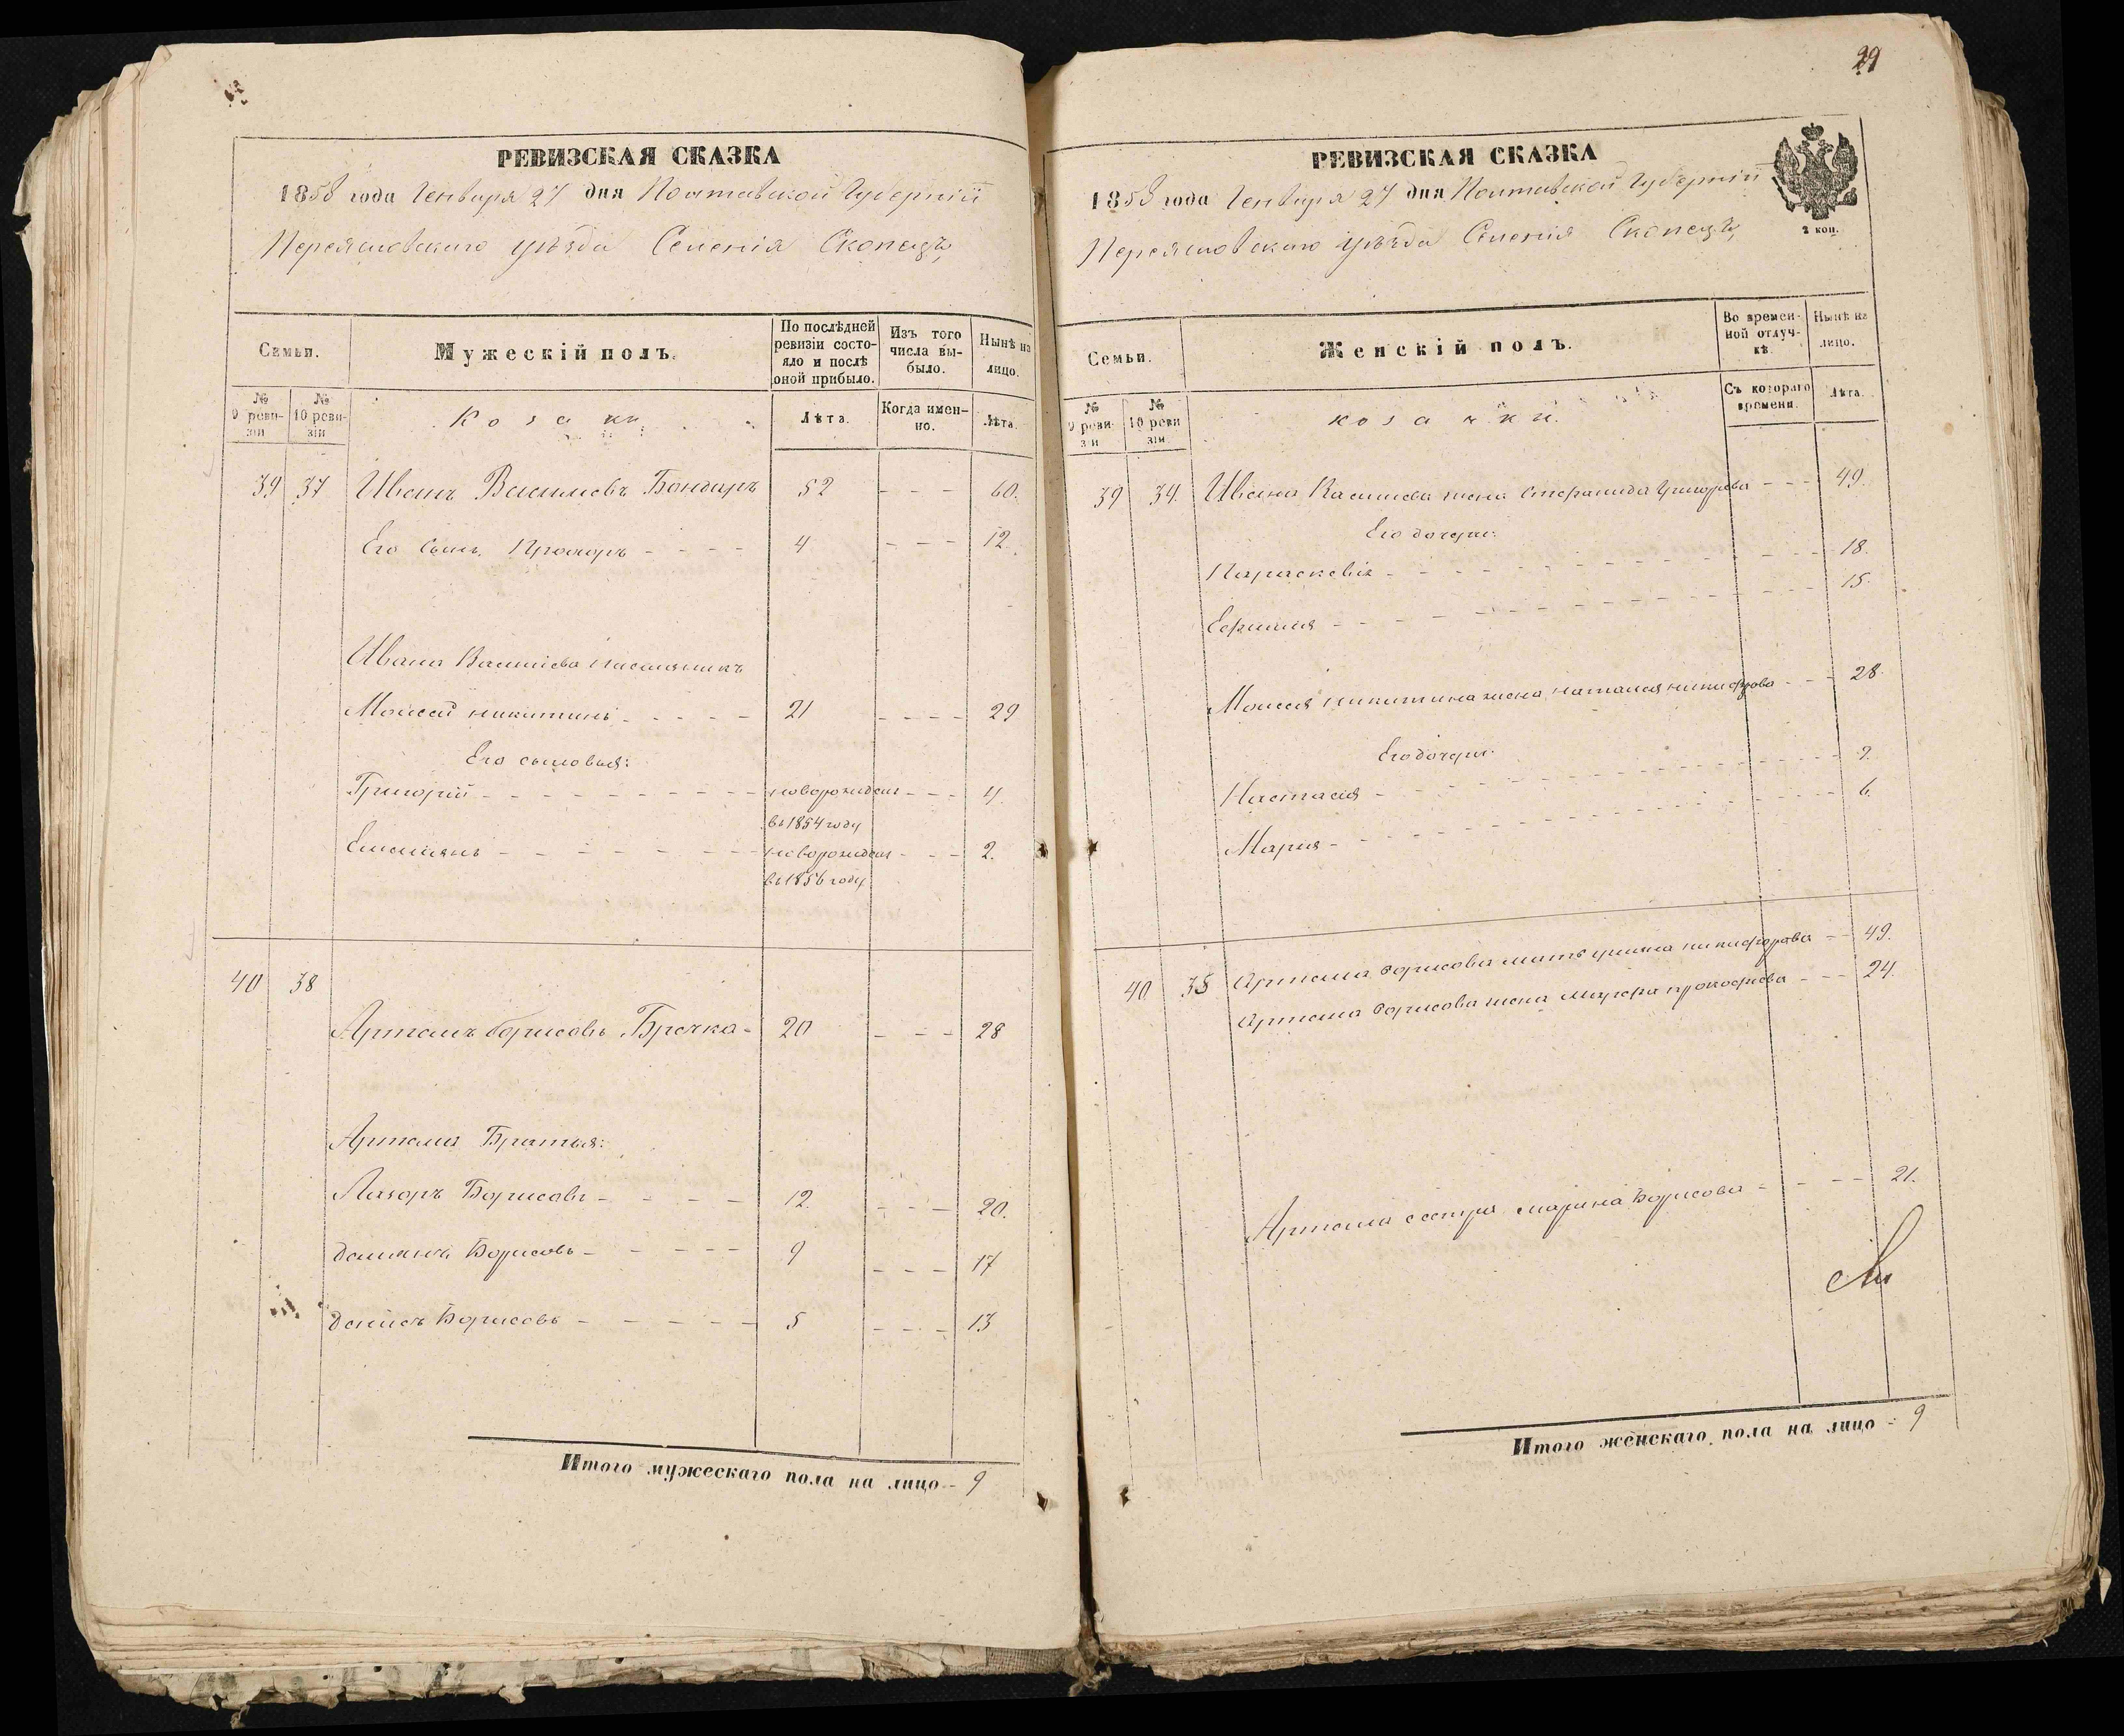 РЕВИЗСКАЯ СКАЗКА
1858 года Генваря 27 дня Полтавской Губерніи
Переяславскаго уѣзда Селенія Скопецъ,
Семьи.
Мужескій полъ.
По послѣдней ревизіи состояло и послѣ оной прибыло.
Изъ того числа выбыло.
Нынѣ на лицо.
№ 9 ревизіи
№ 10 ревизіи
Козаки
Лѣта.
Когда именно.
Лѣта.
39 37 Иванъ Васильевъ Бондарь 52 - - - 60.
Его сынъ Прохоръ - - - - 4 - - - 12.
Ивана Василіева племянникъ
Моисей никитинъ - - - - - 21 - - - - 29
Его сыновья:
Григорій - - - - - - - - - новорожден - - - 4.
въ 1854 году
Емеліянъ - - - - - - - - новорожден - - - 2.
въ 1856 году
40 38
Артемъ борисовъ Брачка - 20 - - - 28
Артема Братья:
Лазорь Борисовъ - - - - 12. - - - 20.
Демянъ Борисовъ - - - - - 9 - - - 17
Денисъ Борисовъ - - - - - 5 - - - 13
Итого мужескаго пола на лицо - 9
29
РЕВИЗСКАЯ СКАЗКА
1858 года Генваря 27 дня Полтавской Губерніи
2 коп.
Переяславскаго уѣзда Селенія Скопецъ,
Семьи.
Женскій полъ.
Во временной отлучкѣ.
Нынѣ на лицо.
№ 9 ревизіи
№ 10 ревизіи
козачки.
Съ котораго времени.
Лѣта.
39 37. Ивана Василиева жена Стефанида Григорева - - - 49.
Его дочери:
Параскевія - - - - - - - - 18.
Ефимия - - - - - - - - 15.
Моисея никитина жена наталия никифорова - - - 28.
Его дочери:
Настасія - - - - - - - - 9.
Мария - - - - - - - - 6.
40. 38 Артема борисова мать улияна никифорова - - 49.
Артема борисова жена Марфа прокофиева - - - 24.
Артема сестра марина Борисова - - - - 21.
Итого женскаго пола на лицо - 9